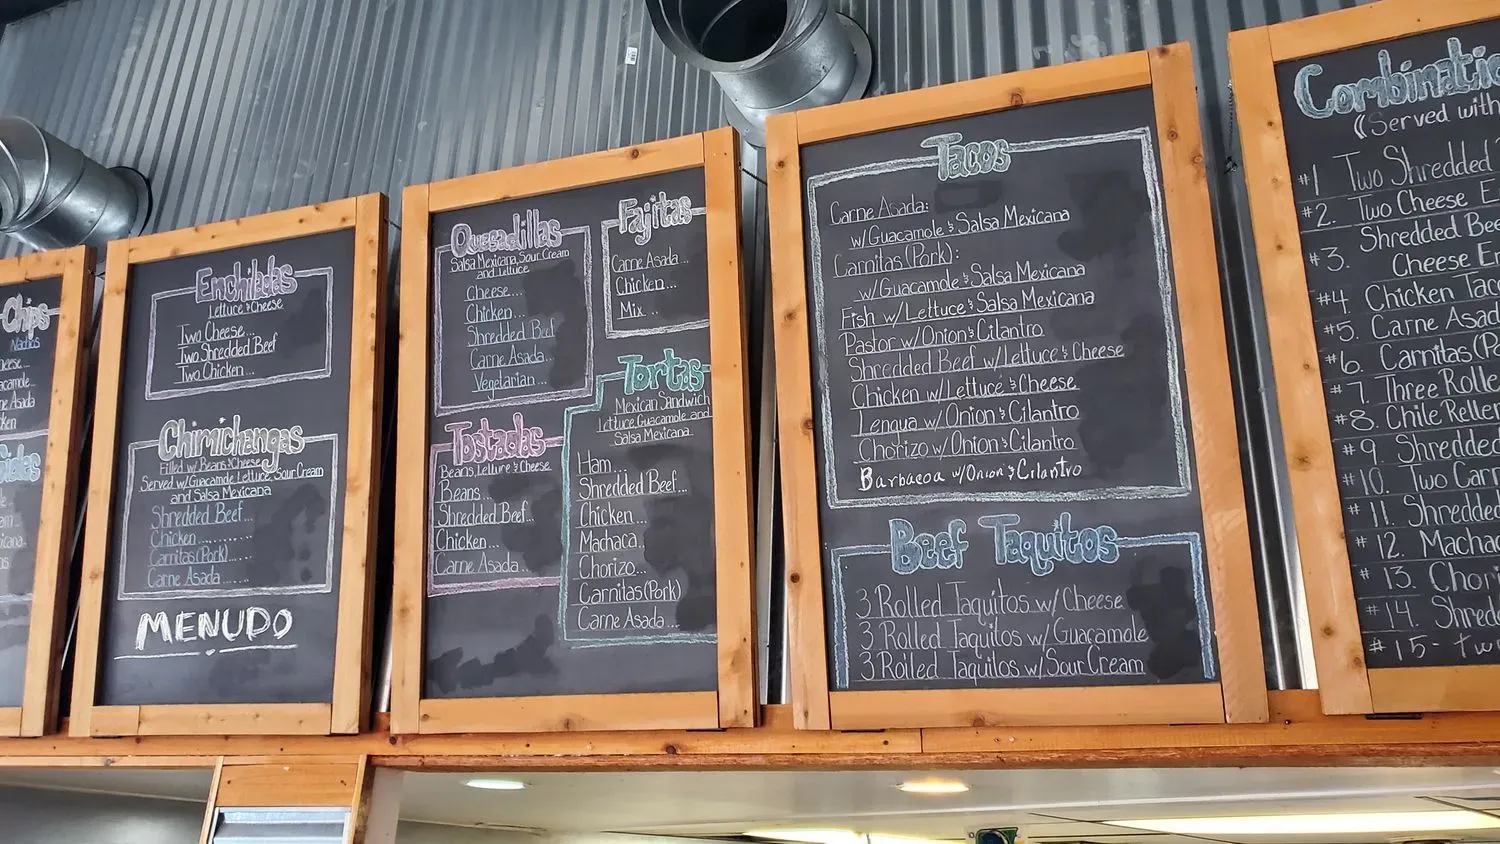 Chips
Nachos
Enchiladas
Lettuce & Cheese
Two Cheese...
Two Shredded Beef
Two Chicken...
Chimichangas
Filled w/ Beans & Cheese
Served w/ Guacamole Lettuce, Sour Cream
and Salsa Mexicana
Shredded Beef...
Chicken..........
Carnitas (Pork).....
Carne Asada......
MENUDO
Quesadillas
Salsa Mexicana, Sour Cream
and Lettuce
Cheese...
Chicken...
Shredded Beef
Carne Asada...
Vegetarian...
Tostadas
Beans, Lettuce & Cheese
Beans...
Shredded Beef...
Chicken...
Carne Asada...
Fajitas
Carne Asada...
Chicken...
Mix..
Tortas
Mexican Sandwich
Lettuce Guacamole and
Salsa Mexicana
Ham...
Shredded Beef...
Chicken...
Machaca...
Chorizo...
Carnitas (Pork)
Carne Asada...
Tacos
Carne Asada:
w/ Guacamole & Salsa Mexicana
Carnitas (Pork):
w/ Guacamole & Salsa Mexicana
Fish w/ Lettuce & Salsa Mexicana
Pastor w/ Onion & Cilantro
Shredded Beef w/ Lettuce & Cheese
Chicken w/ Lettuce & Cheese
Lengua w/ Onion & Cilantro
Chorizo w/ Onion & Cilantro
Barbacoa w/ Onion & Cilantro
Beef Taquitos
3 Rolled Taquitos w/ Cheese
3 Rolled Taquitos w/ Guacamole
3 Rolled Taquitos w/ Sour Cream
Combinatio
(Served with
#1 Two Shredded
#2. Two Cheese E
#3. Shredded Bee
Cheese En
#4. Chicken Taco
#5. Carne Asad
#6. Carnitas (Po
#7. Three Rolle
#8. Chile Reller
#9. Shredded
#10. Two Carn
#11. Shredded
#12. Machac
#13. Chori
#14. Shred
#15- Tw